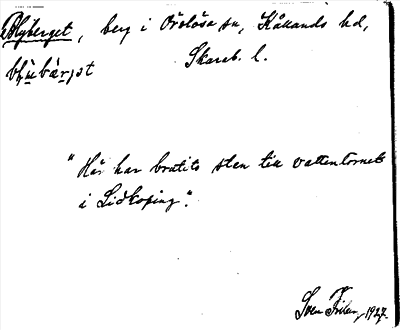 Blyberget, berg i Örslösa sn, Kållands hd,
Skarab. l.
"Här har brutits sten till vattentornet
i Lidköping".
Sven 1927.